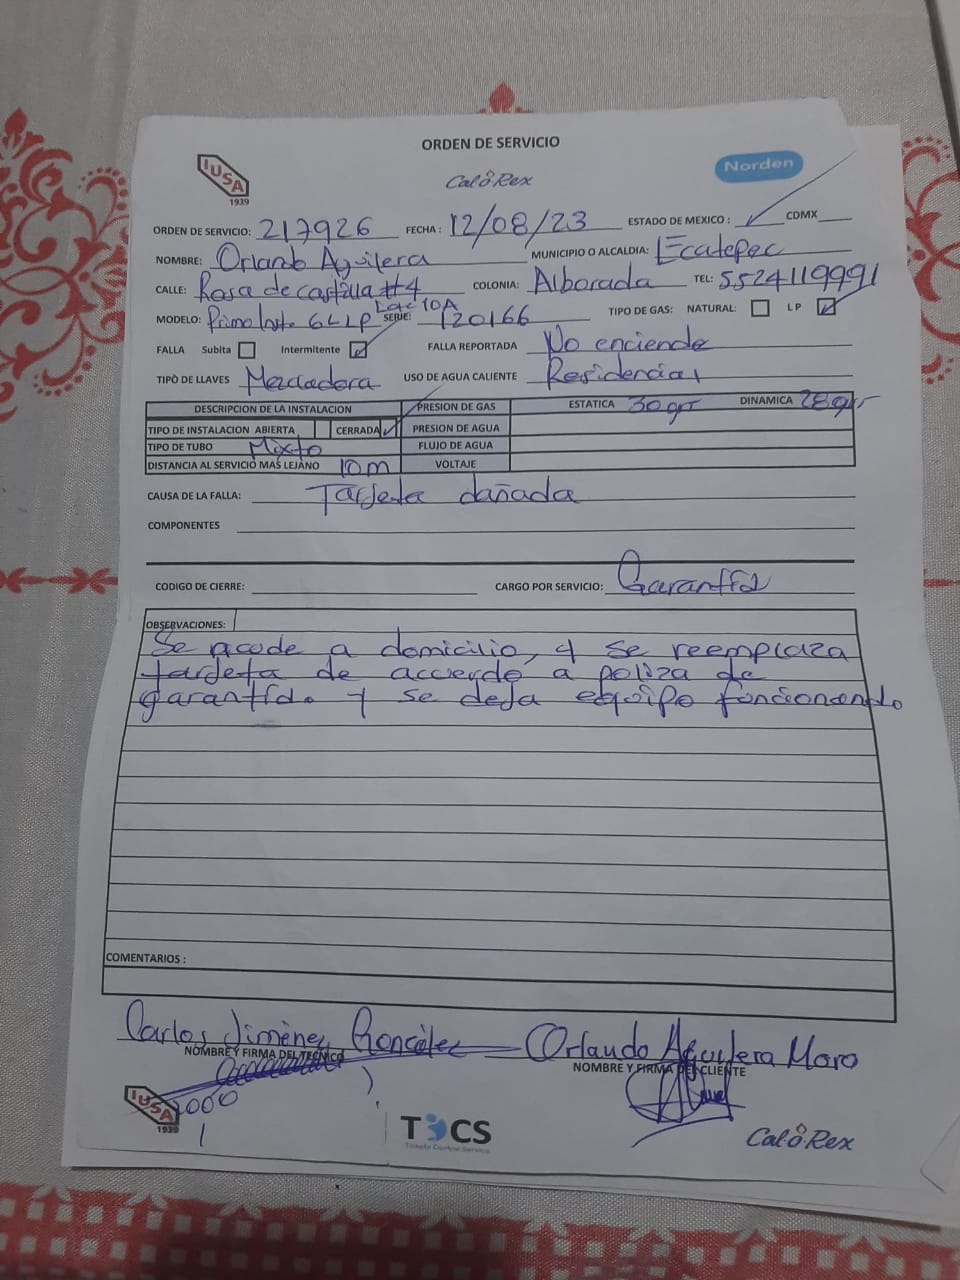 ORDEN DE SERVICIO
IUSA
1939
CalôRex
Norden
ORDEN DE SERVICIO: 217926 FECHA: 12/08/23 ESTADO DE MEXICO: ✓ CDMX
NOMBRE: Orlando Aguilera MUNICIPIO O ALCALDIA: Ecatepec
CALLE: Rosa de castilla #4 Lote 10A COLONIA: Alborada TEL: 5524119991
MODELO: Primo Inst 6L LP SERIE: 120166 TIPO DE GAS: NATURAL: ☐ LP ☑
FALLA Subita ☐ Intermitente ☑ FALLA REPORTADA No enciende
TIPÒ DE LLAVES Mezcladora USO DE AGUA CALIENTE Residencial
DESCRIPCION DE LA INSTALACION PRESION DE GAS ESTATICA 30gr DINAMICA 28gr
TIPO DE INSTALACION ABIERTA CERRADA ✓ PRESION DE AGUA
TIPO DE TUBO Mixto FLUJO DE AGUA
DISTANCIA AL SERVICIO MAS LEJANO 10m VOLTAJE
CAUSA DE LA FALLA: Tarjeta dañada
COMPONENTES
CODIGO DE CIERRE: CARGO POR SERVICIO: Garantía
OBSERVACIONES:
Se acude a domicilio, y se reemplaza
tarjeta de acuerdo a poliza de
garantía. y se deja equipo funcionando
COMENTARIOS :
Carlos Jiménez González Orlando Aguilera Moro
NOMBRE Y FIRMA DEL TECNICO NOMBRE Y FIRMA DEL CLIENTE
IUSA
1939
TCS
Tickets Control Service
CalôRex